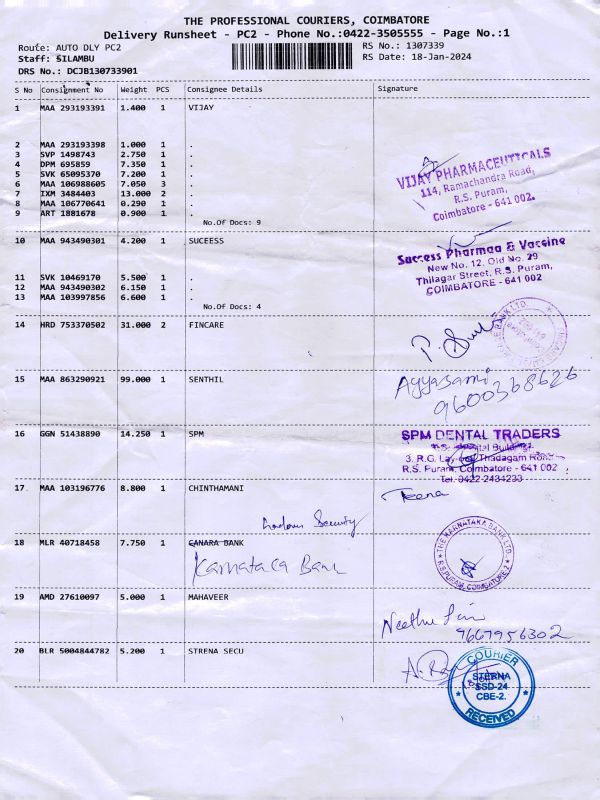 THE PROFESSIONAL COURIERS, COIMBATORE
Delivery Runsheet - PC2 - Phone No.:0422-3505555 - Page No.:1
Route: AUTO DLY PC2
RS No.: 1307339
Staff: SILAMBU
RS Date: 18-Jan-2024
DRS No.: DCJB130733901
S No Consignment No Weight PCS Consignee Details Signature
1 MAA 293193391 1.400 1 VIJAY
2 MAA 293193398 1.000 1 .
3 SVP 1498743 2.750 1 .
4 DPM 695859 7.350 1 .
5 SVK 65095370 7.200 1 .
6 MAA 106988605 7.050 3 .
7 IXM 3484403 13.000 2 .
8 MAA 106770641 0.290 1 .
9 ART 1881678 0.900 1 .
No.Of Docs: 9
VIJAY PHARMACEUTICALS
114, Ramachandra Road,
R.S. Puram,
Coimbatore - 641 002.
10 MAA 943490301 4.200 1 SUCEESS
11 SVK 10469170 5.500 1 .
12 MAA 943490302 6.150 1 .
13 MAA 103997856 6.600 1 .
No.Of Docs: 4
Success Pharmaa & Vaccine
New No. 12, Old No. 29
Thilagar Street, R.S. Puram,
COIMBATORE - 641 002
14 HRD 753370502 31.000 2 FINCARE
15 MAA 863290921 99.000 1 SENTHIL
Ayyasami
9600368626
16 GGN 51438890 14.250 1 SPM
SPM DENTAL TRADERS
3. R.G. Thadagam Road
R.S. Puram, Coimbatore - 641 002
Tel: 0422-2434233
17 MAA 103196776 8.800 1 CHINTHAMANI
Teena
Security
18 MLR 40718458 7.750 1 CANARA BANK
Karnataca Bank
THE KARNATAKA BANK LTD.
R.S.PURAM, COIMBATORE-2
19 AMD 27610097 5.000 1 MAHAVEER
Neethu
9667956302
20 BLR 5004844782 5.200 1 STRENA SECU
COURIER
STERNA
SSD-24
CBE-2.
RECEIVED